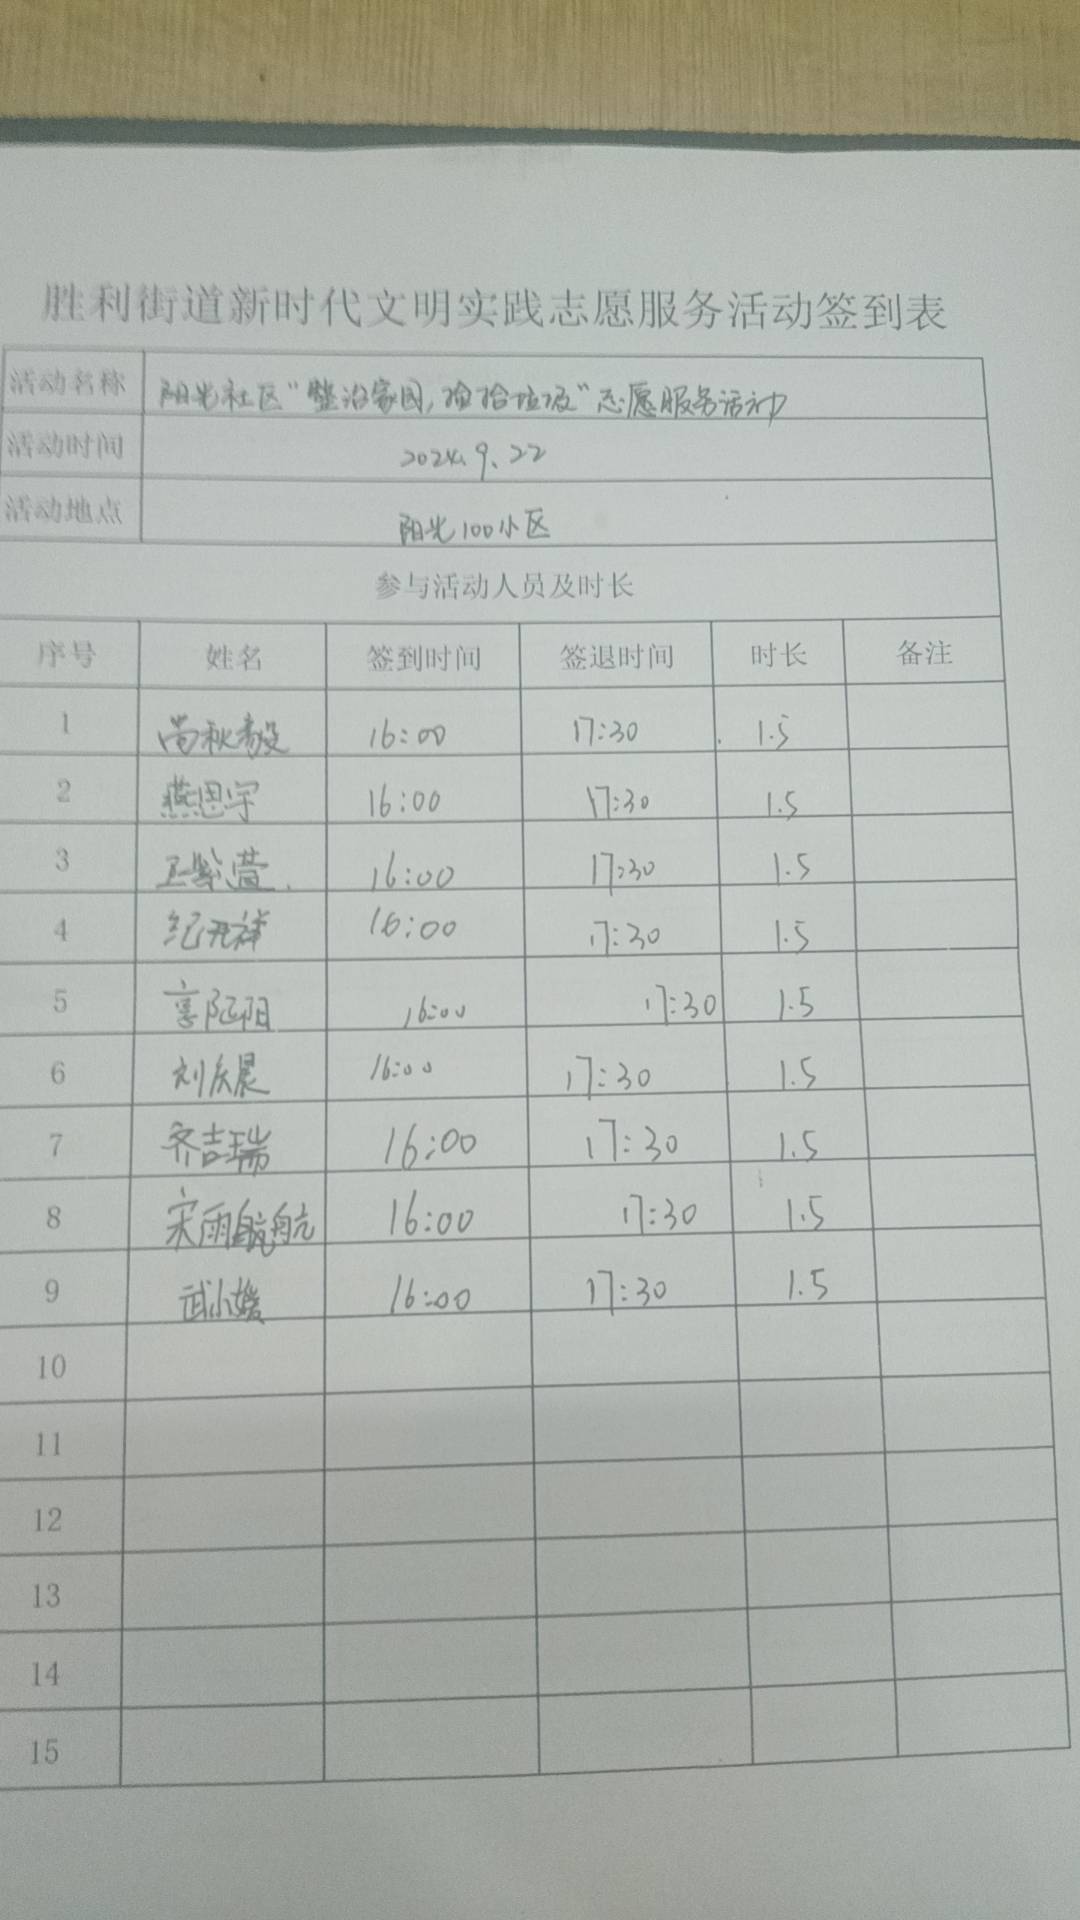 胜利街道新时代文明实践志愿服务活动签到表
活动名称 阳光社区“整治家园,捡拾垃圾”志愿服务活动
活动时间 2024.9.22
活动地点 阳光100小区
参与活动人员及时长
序号 姓名 签到时间 签退时间 时长 备注
1 尚秋毅 16:00 17:30 1.5
2 燕思宇 16:00 17:30 1.5
3 16:00 17:30 1.5
4 纪开祥 16:00 17:30 1.5
5 16:00 17:30 1.5
6 刘庆晨 16:00 17:30 1.5
7 齐吉瑞 16:00 17:30 1.5
8 宋雨航 16:00 17:30 1.5
9 武小媛 16:00 17:30 1.5
10
11
12
13
14
15